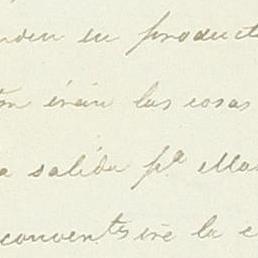 nden su product
irán las cosas
a salida pª Ma
convents iré la c